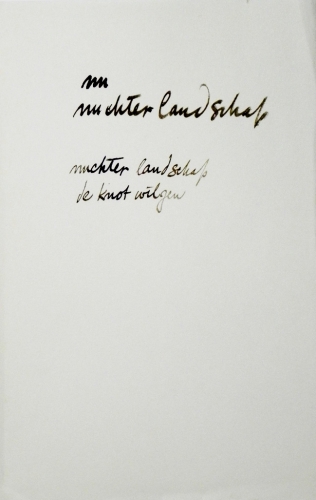 nu
nuchter landschap
nuchter landschap
de knot wilgen